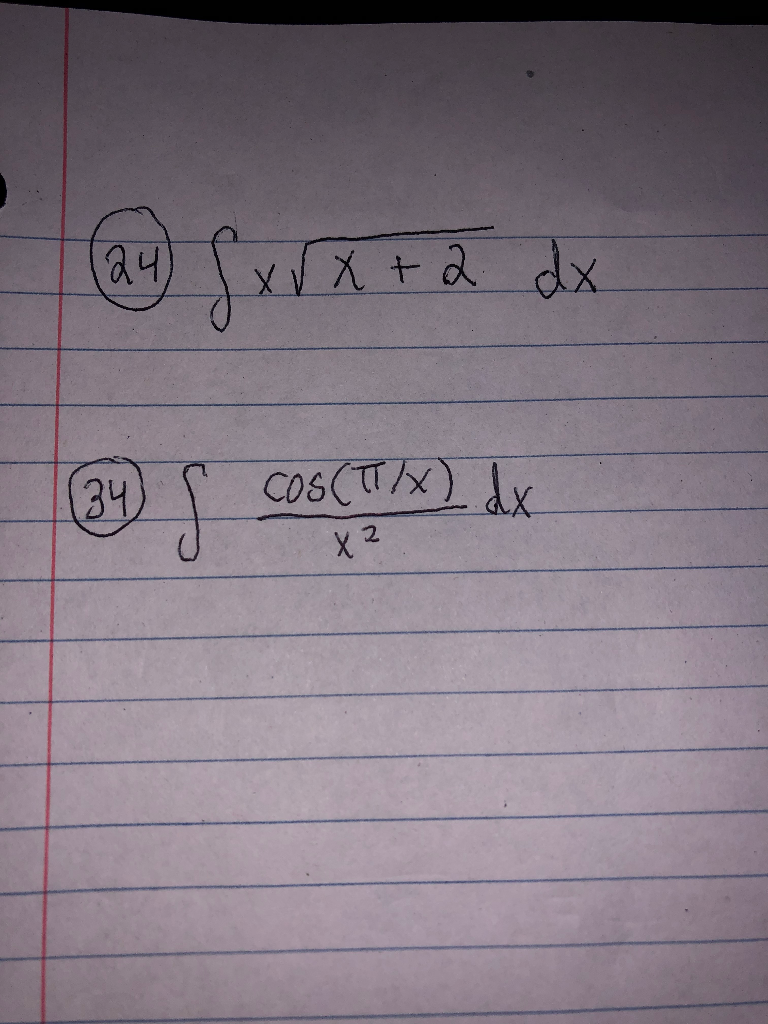 24 ∫ x√(x + 2) dx
34 ∫ cos(π/x) / x² dx